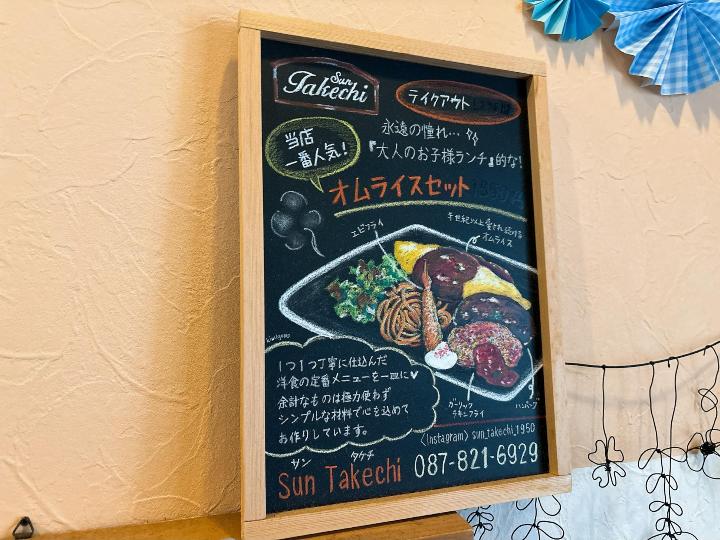 Sun
Takechi
テイクアウト
永遠の憧れ…
『大人のお子様ランチ』的な!
当店
一番人気!
オムライスセット
エビフライ
半世紀以上愛され続ける
オムライス
1つ1つ丁寧に仕込んだ
洋食の定番メニューを一皿に♥
余計なものは極力使わず
シンプルな材料で心を込めて
お作りしています。
ガーリック
チキンフライ
ハンバーグ
〈Instagram〉 sun_takechi_1950
サン タケチ
Sun Takechi 087-821-6929